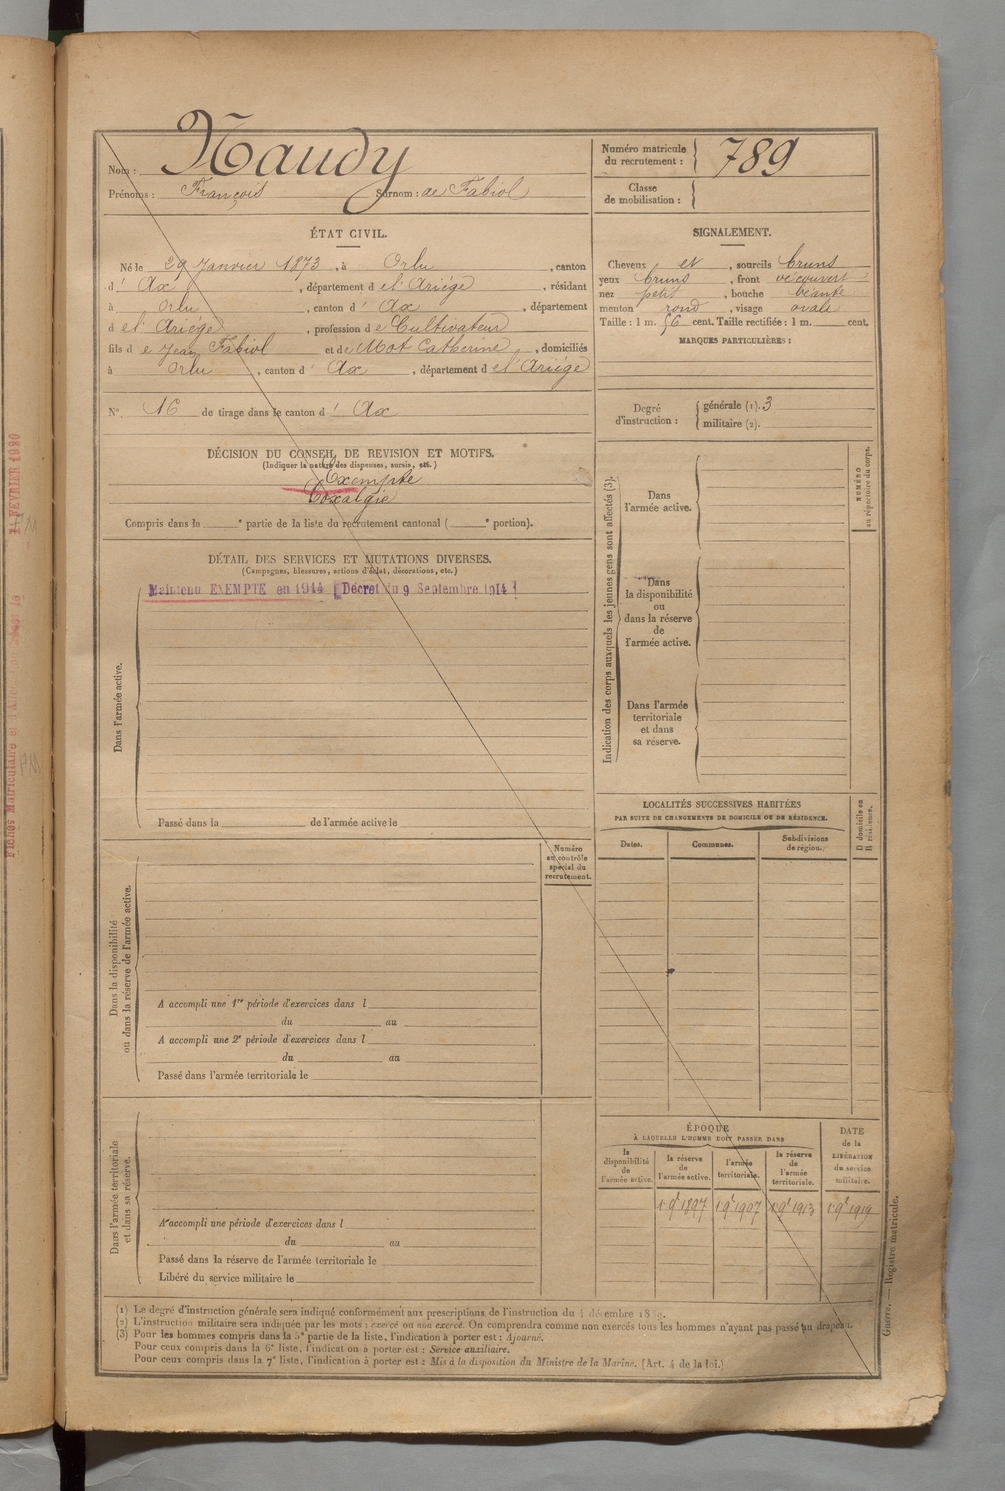 Nom : Naudy
Prénoms : François Surnom : de Fabiol
Numéro matricule du recrutement : 789
Classe de mobilisation :
ÉTAT CIVIL.
Né le 29 Janvier 1873, à Orlu, canton
d' Ax, département de l'Ariége, résidant
à Orlu, canton d' Ax, département
de l'Ariége, profession de Cultivateur
fils de Jean Fabiol et de Mot Catherine, domiciliés
à Orlu, canton d' Ax, département de l'Ariége
N° 16 de tirage dans le canton d' Ax
SIGNALEMENT.
Cheveux et, sourcils bruns
yeux bruns, front découvert
nez petit, bouche béante
menton rond, visage ovale
Taille : 1 m. 56 cent. Taille rectifiée : 1 m. cent.
MARQUES PARTICULIÈRES :
Degré d'instruction : générale (1). 3
militaire (2).
DÉCISION DU CONSEIL DE REVISION ET MOTIFS.
(Indiquer la nature des dispenses, sursis, etc.)
Exempté
Coxalgie
Compris dans la e partie de la liste du recrutement cantonal ( e portion).
DÉTAIL DES SERVICES ET MUTATIONS DIVERSES.
(Campagnes, blessures, actions d'éclat, décorations, etc.)
Maintenu EXEMPTE en 1914 [Décret du 9 Septembre 1914]
Dans l'armée active.
Passé dans la de l'armée active le
Numéro au contrôle spécial du recrutement.
Dans la disponibilité ou dans la réserve de l'armée active.
A accompli une 1re période d'exercices dans l
du au
A accompli une 2e période d'exercices dans l
du au
Passé dans l'armée territoriale le
Dans l'armée territoriale et dans sa réserve.
A accompli une période d'exercices dans l
du au
Passé dans la réserve de l'armée territoriale le
Libéré du service militaire le
Indication des corps auxquels les jeunes gens sont affectés (3).
Dans l'armée active.
Dans la disponibilité ou dans la réserve de l'armée active.
Dans l'armée territoriale et dans sa réserve.
NUMÉRO au répertoire du corps.
LOCALITÉS SUCCESSIVES HABITÉES
PAR SUITE DE CHANGEMENTS DE DOMICILE OU DE RÉSIDENCE.
Dates. Communes. Subdivisions de région.
D domicile ou R résidence.
ÉPOQUE
À LAQUELLE L'HOMME DOIT PASSER DANS
la disponibilité de l'armée active.
la réserve de l'armée active.
l'armée territoriale.
la réserve de l'armée territoriale.
DATE de la LIBÉRATION du service militaire.
1 9e 1897 1 9e 1907 1 9e 1913 1 9e 1919
(1) Le degré d'instruction générale sera indiqué conformément aux prescriptions de l'instruction du 4 décembre 1889.
(2) L'instruction militaire sera indiquée par les mots : exercé ou non exercé. On comprendra comme non exercés tous les hommes n'ayant pas passé au drapeau.
(3) Pour les hommes compris dans la 5e partie de la liste, l'indication à porter est : Ajourné.
Pour ceux compris dans la 6e liste, l'indication à porter est : Service auxiliaire.
Pour ceux compris dans la 7e liste, l'indication à porter est : Mis à la disposition du Ministre de la Marine. (Art. 4 de la loi.)
Guerre. — Registre matricule.